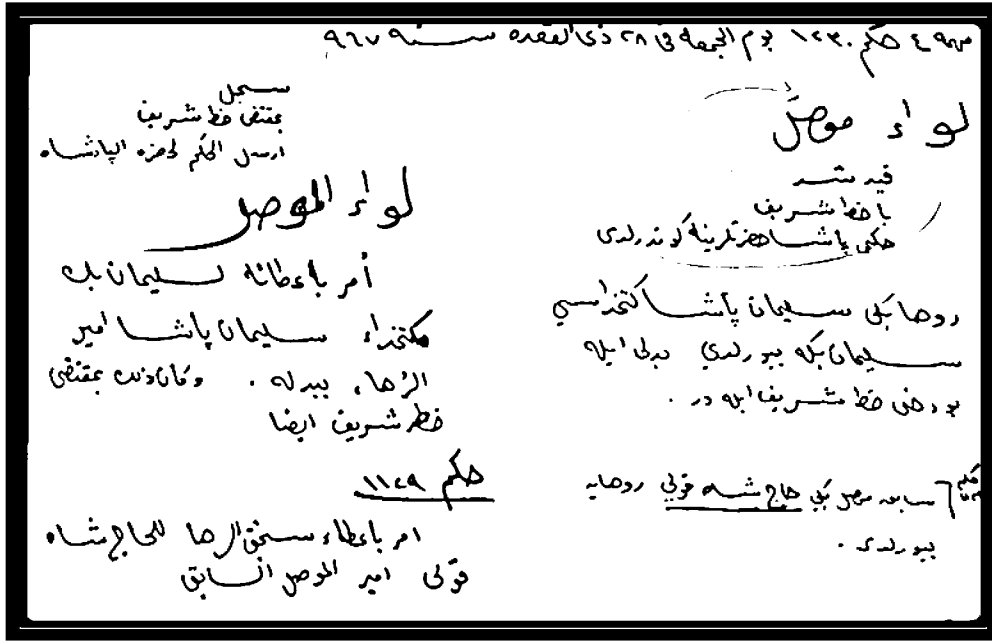 مهمة ٤ حكم ١٢٣٠ يوم الجمعة في ٢٨ ذى القعده سنة ٩٦٧
لواء موصل
قيد شد
با خط شريف
حكمى پاشا حضرتلرينه كوندرلدى
روحا بكى سليمان پاشا كتخداسي
سليمان بكه بيورلدي بدلى ايله
بو دخى خط شريف ايله در .
سابقه موصل بكي حاج شاه قولي روحايه
بيورلدى .
سجل
بمقتضى خط شريف
ارسل الحكم لحضرة الپادشاه
لواء الموصل
أمر باعطائه لسليمان بك
مكتخداء سليمان پاشا امير
الرها، ببدله . وكان ذلك بمقتضى
خط شريف ايضا
حكم ١١٢٩
امر باعطاء سنجق الرها للحاج شاه
قولى امير الموصل السابق